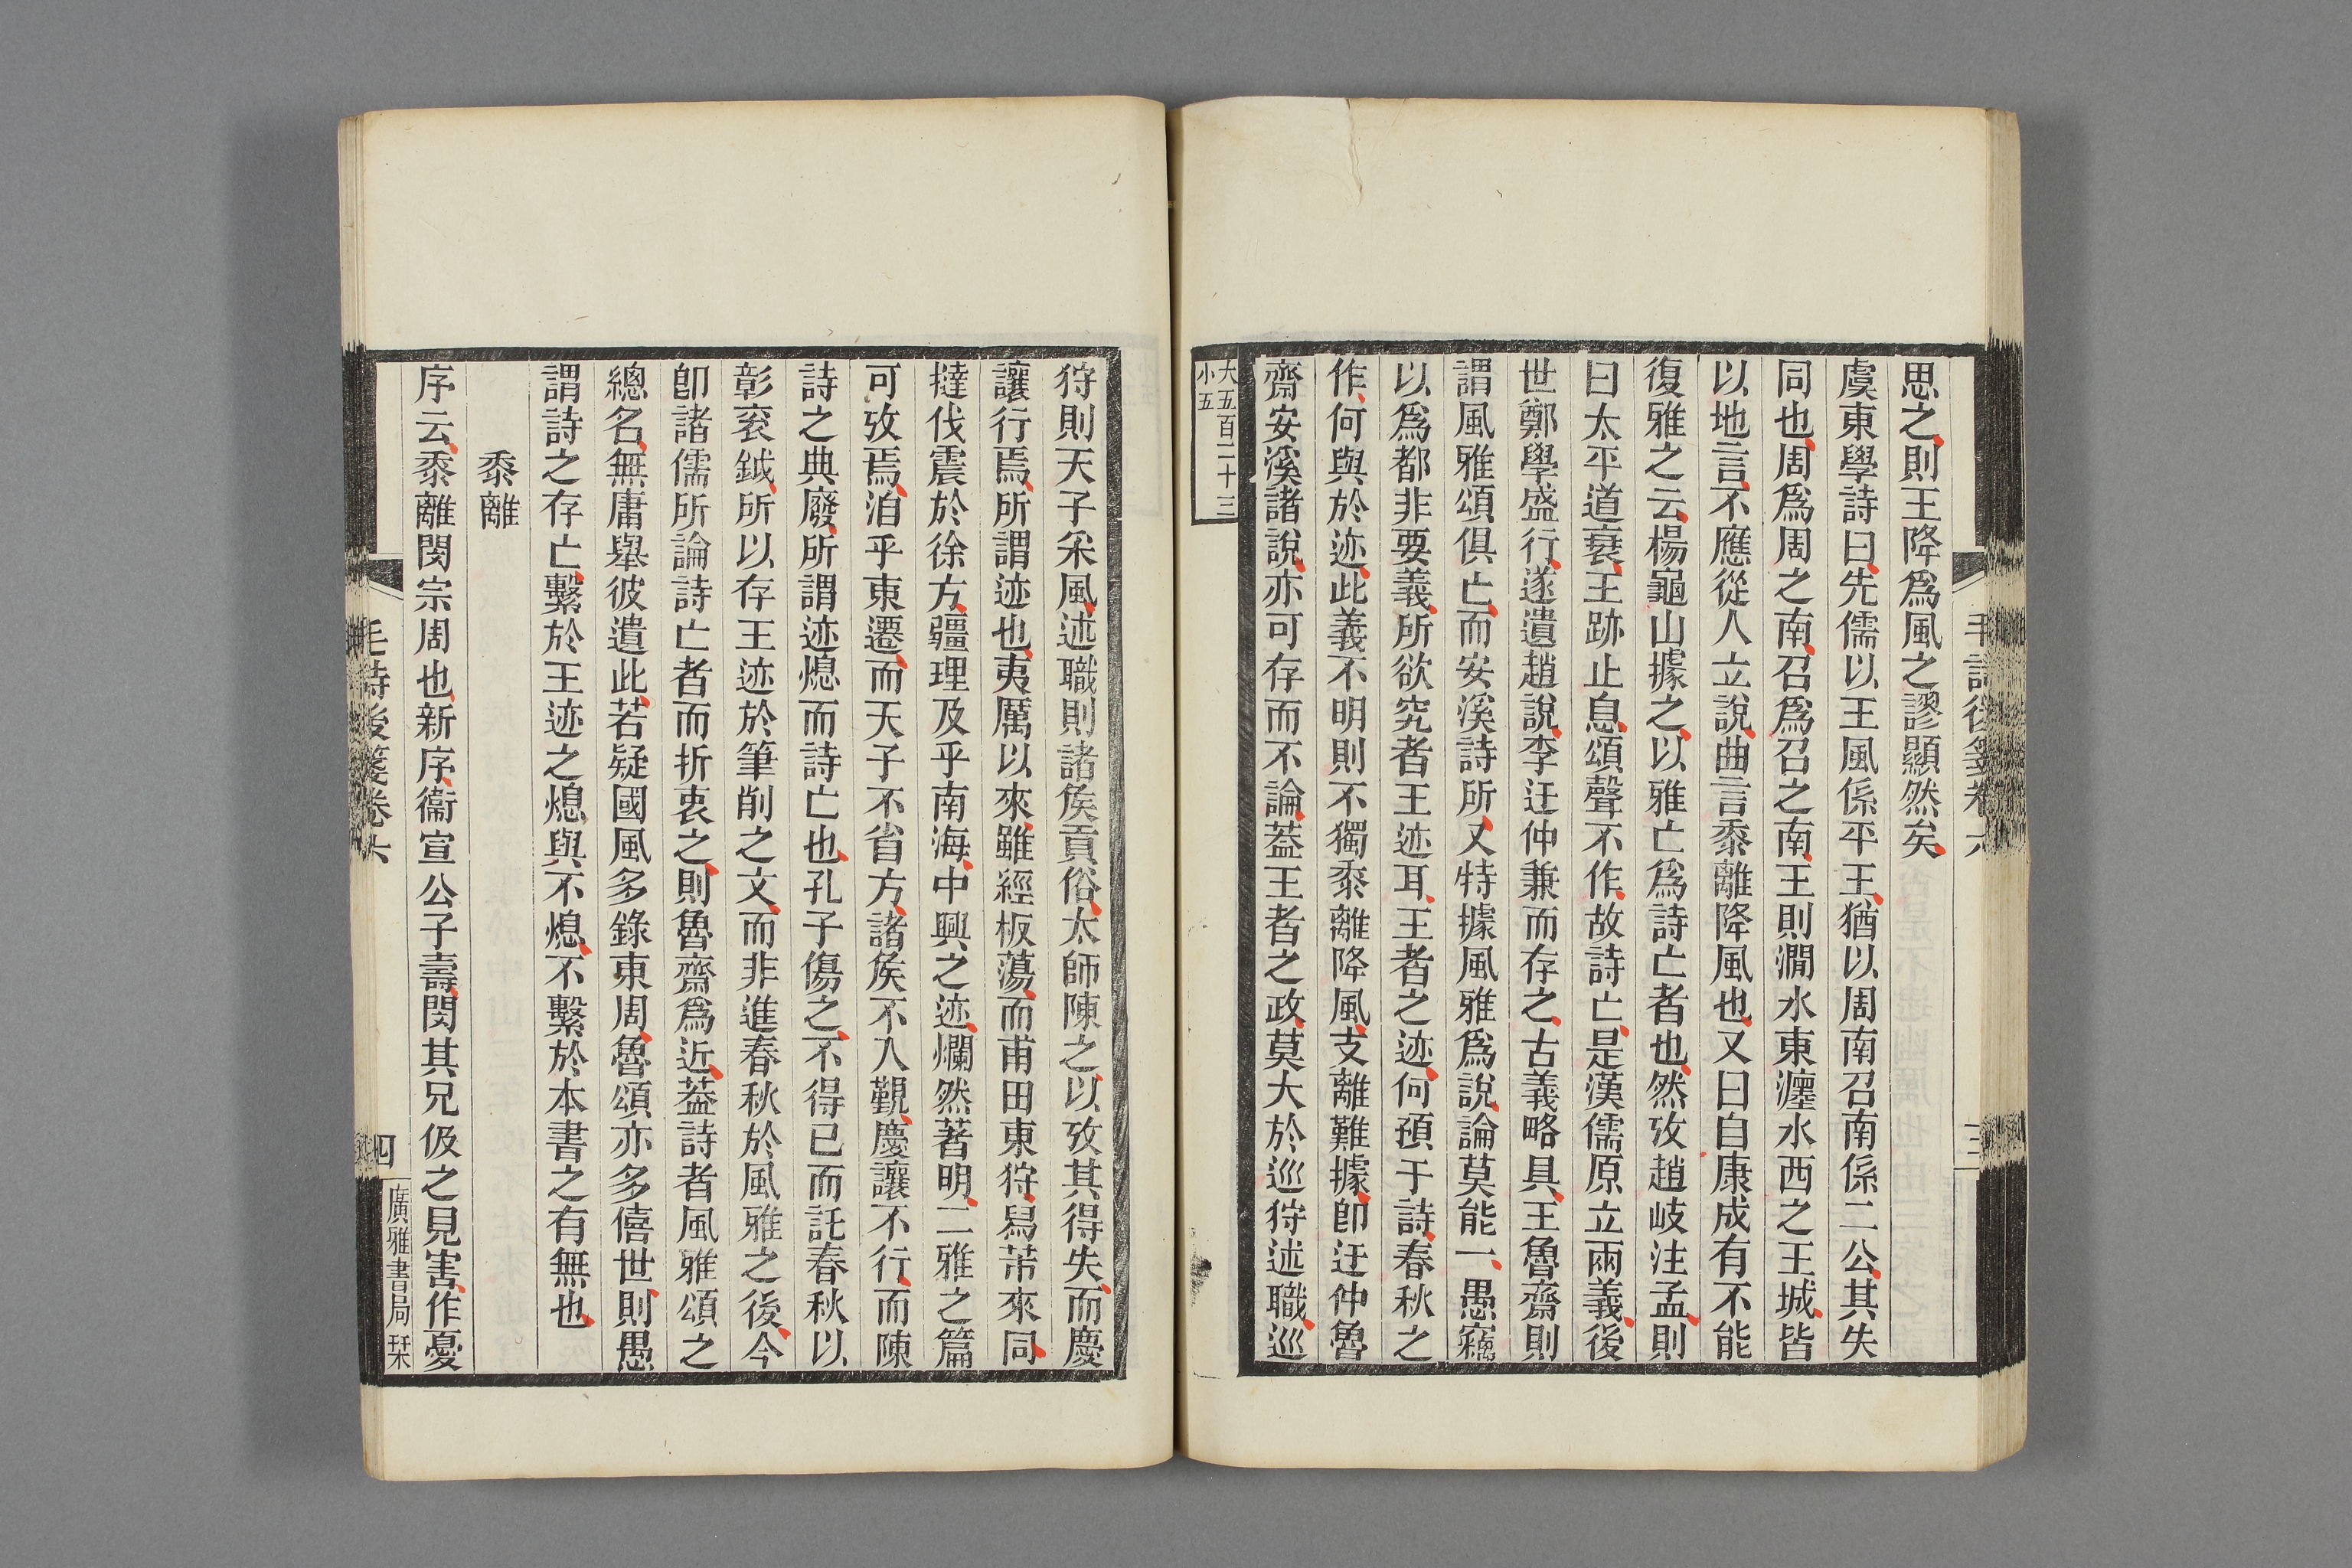 思之則王降爲風之謬顯然矣
虞東學詩曰先儒以王風係平王猶以周南召南係二公其失
同也周爲周之南召爲召之南王則澗水東瀍水西之王城皆
以地言不應從人立說曲言黍離降風也又曰自康成有不能
復雅之云楊龜山據之以雅亡爲詩亡者也然攷趙岐注孟則
曰太平道衰王跡止息頌聲不作故詩亡是漢儒原立兩義後
世鄭學盛行遂遺趙說李迂仲兼而存之古義略具王魯齋則
謂風雅頌俱亡而安溪詩所又特據風雅爲說論莫能一愚竊
以爲都非要義所欲究者王迹耳王者之迹何預于詩春秋之
作何與於迹此義不明則不獨黍離降風支離難據卽迂仲魯
齋安溪諸說亦可存而不論葢王者之政莫大於巡狩述職巡
大五百二十三
小五
毛詩後箋卷六
三
狩則天子采風述職則諸矦貢俗太師陳之以攷其得失而慶
讓行焉所謂迹也夷厲以來雖經板蕩而甫田東狩舄芾來同
撻伐震於徐方疆理及乎南海中興之迹爛然著明二雅之篇
可攷焉洎乎東遷而天子不省方諸矦不入覲慶讓不行而陳
詩之典廢所謂迹熄而詩亡也孔子傷之不得已而託春秋以
彰袞鉞所以存王迹於筆削之文而非進春秋於風雅之後今
卽諸儒所論詩亡者而折衷之則魯齋爲近葢詩者風雅頌之
總名無庸舉彼遺此若疑國風多錄東周魯頌亦多僖世則愚
謂詩之存亡繫於王迹之熄與不熄不繫於本書之有無也
黍離
序云黍離閔宗周也新序衞宣公子壽閔其兄伋之見害作憂
毛詩後箋卷六
四
廣雅書局栞